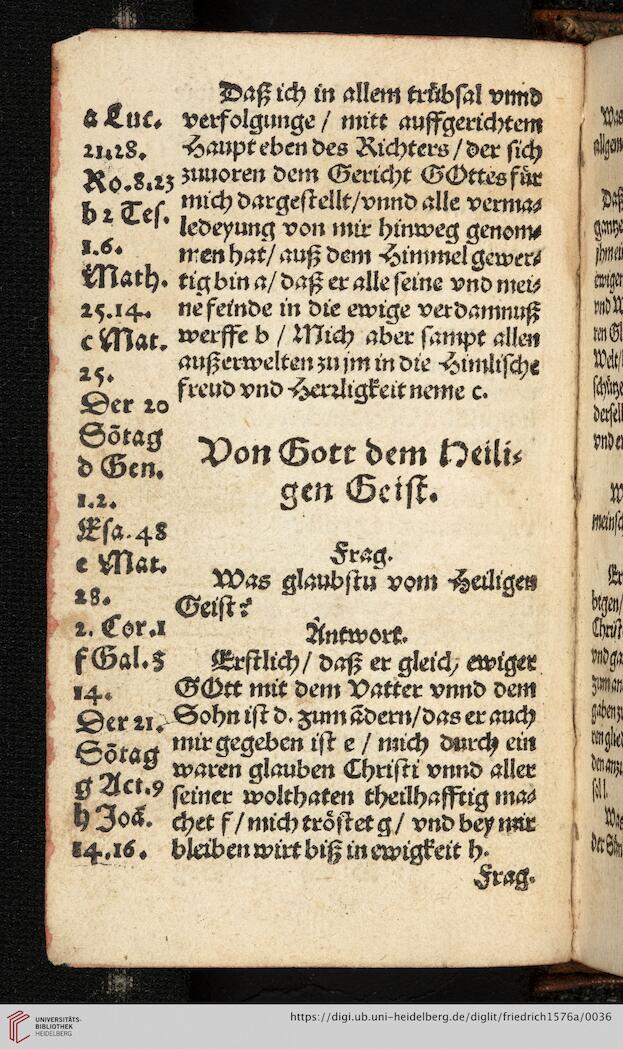 Daß ich in allem trübsal vnnd
verfolgunge / mitt auffgerichtem
Haupt eben des Richters / der sich
zuuoren dem Gericht GOttes für
mich dargestellt/vnnd alle verma⸗
ledeyung von mir hinweg genom⸗
men hat/ auß dem Himmel gewer⸗
tig bin a/ daß er alle seine vnd mei⸗
ne feinde in die ewige verdamnuß
werffe b / Mich aber sampt allen
außerwelten zu jm in die Himlische
freud vnd Herrligkeit neme c.
a Luc.
21.28.
Ro.8.23
b 2 Tes.
1.6.
Math.
25.14.
c Mat.
25.
Der 20
Sõtag
d Gen.
1.2.
Esa. 48
e Mat.
28.
2. Cor.1
f Gal.3
14.
Der 21.
Sõtag
g Act.9
h Joã.
14.16.
Von Gott dem Heili⸗
gen Geist.
Frag.
Was glaubstu vom Heiligen
Geist?
Antwort.
Erstlich / daß er gleich ewiger
GOtt mit dem Vatter vnnd dem
Sohn ist d. zum ãdern/das er auch
mir gegeben ist e / mich durch ein
waren glauben Christi vnnd aller
seiner wolthaten theilhafftig ma⸗
chet f / mich tröstet g / vnd bey mir
bleiben wirt biß in ewigkeit h.
Frag.
UNIVERSITÄTS-
BIBLIOTHEK
HEIDELBERG
https://digi.ub.uni-heidelberg.de/diglit/friedrich1576a/0036